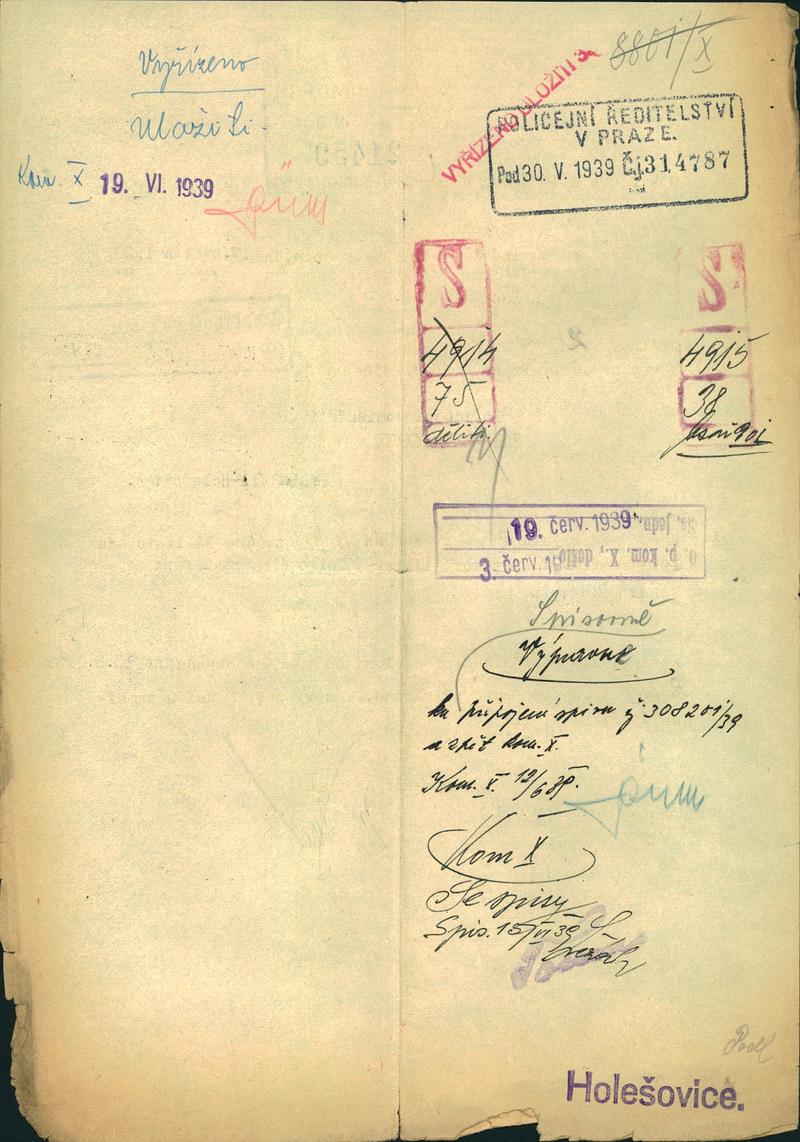 Vyřízeno
Uložiti.
Kom. X 19. VI. 1939
8801/X
VYŘÍZENO ULOŽITI
POLICEJNÍ ŘEDITELSTVÍ
V PRAZE.
Pod 30. V. 1939 Čj. 314787
S
4914
75
S
4915
38
19. červ. 1939
3. červ. 19
O. p. kom. X, došlo
Spisovně
Výpravně
ku připojení spisu č 308201/39
a zpět kom. X.
Kom. X. 12/6 39.
Kom X
Se spisy
Spis. 15/VI 39
Holešovice.